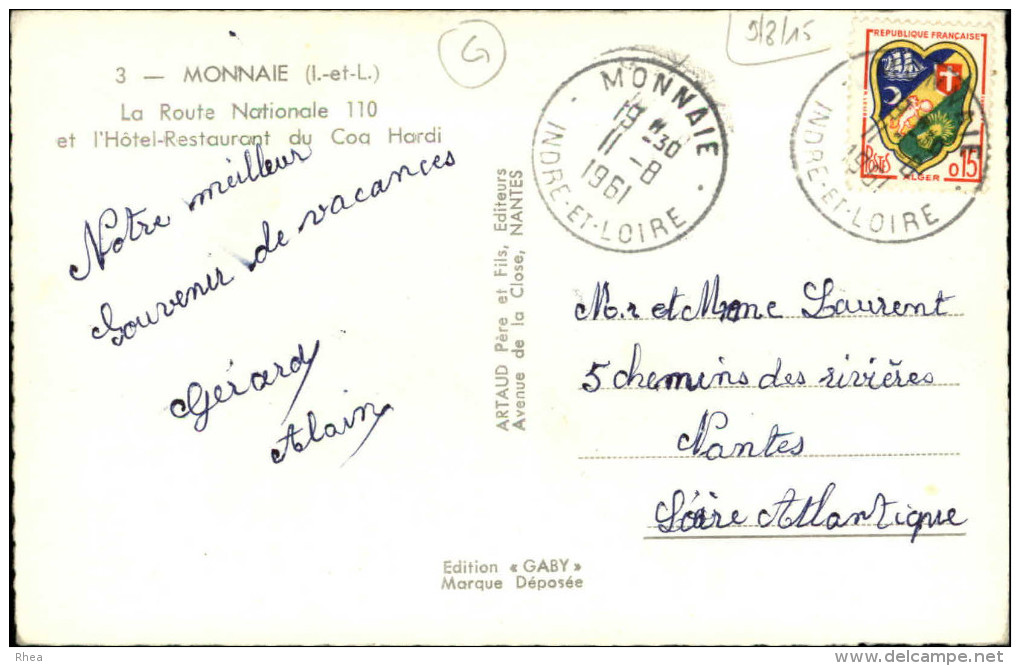 G
9/8/15
3 — MONNAIE (I.-et-L.)
La Route Nationale 110
et l'Hôtel-Restaurant du Coq Hardi
Notre meilleur
Souvenir de vacances
Gérard
Alain
ARTAUD Père et Fils, Editeurs
Avenue de la Close, NANTES
MONNAIE
19 H 30
11 -8
1961
INDRE-ET-LOIRE
REPUBLIQUE FRANÇAISE
POSTES
ALGER
0,15
1961
INDRE-ET-LOIRE
M.r et Mme Laurent
5 chemins des rivières
Nantes
Loire Atlantique
Edition « GABY »
Marque Déposée
Rhea
delcampe.net